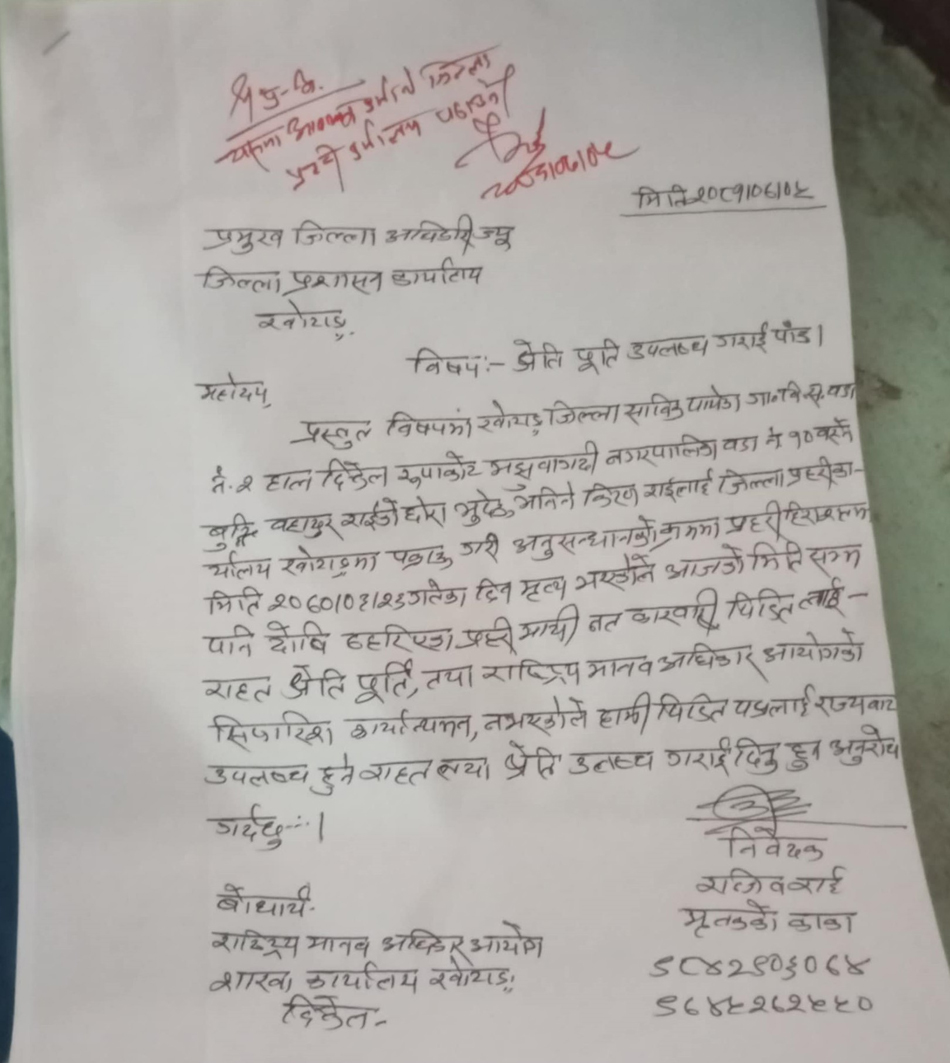 प्र.जि.अ.
यसमा आवश्यक कार्यार्थ जिल्ला
प्रहरी कार्यालय पठाउने
२०८१।०६।०८
मिति २०८१।०६।०८
प्रमुख जिल्ला अधिकारी ज्यू
जिल्ला प्रशासन कार्यालय
खोटाङ्
विषय:- क्षेति पूर्ति उपलब्ध गराई पाँउ।
महोदय,
प्रस्तुत विषयमा खोटाङ् जिल्ला साविक गा.वि.स. वडा
नं. २ हाल दिक्तेल रुपाकोट मझुवागढी नगरपालिका वडा नं १० बस्ने
बुद्धि बहादुर राईको छोरा भनिने किरण राईलाई जिल्ला प्रहरी का-
र्यालय खोटाङ्मा पक्राउ गरी अनुसन्धानको क्रममा प्रहरी हिरासतमा
मिति गतेका दिन मृत्य भएकोले आजको मिति सम्म
पनि दोषि ठहरिएका प्रहरी माथी नत कारवाही, पिडित लाई -
राहत क्षेति पूर्ति, तथा राष्ट्रिय मानव अधिकार आयोगको
सिफारिश कार्यान्वयन, नभएकोले हामी पिडित पक्षलाई राज्यबाट
उपलब्ध हुने राहत तथा क्षेति उपलब्ध गराई दिनु हुन अनुरोध
गर्दछु....।
निवेदक
राजिव राई
मृतकको काका
९८४२९०३०६४
बोधार्थ.
राष्ट्रिय मानव अधिकार आयोग
शाखा कार्यालय खोटाङ्
दिक्तेल-